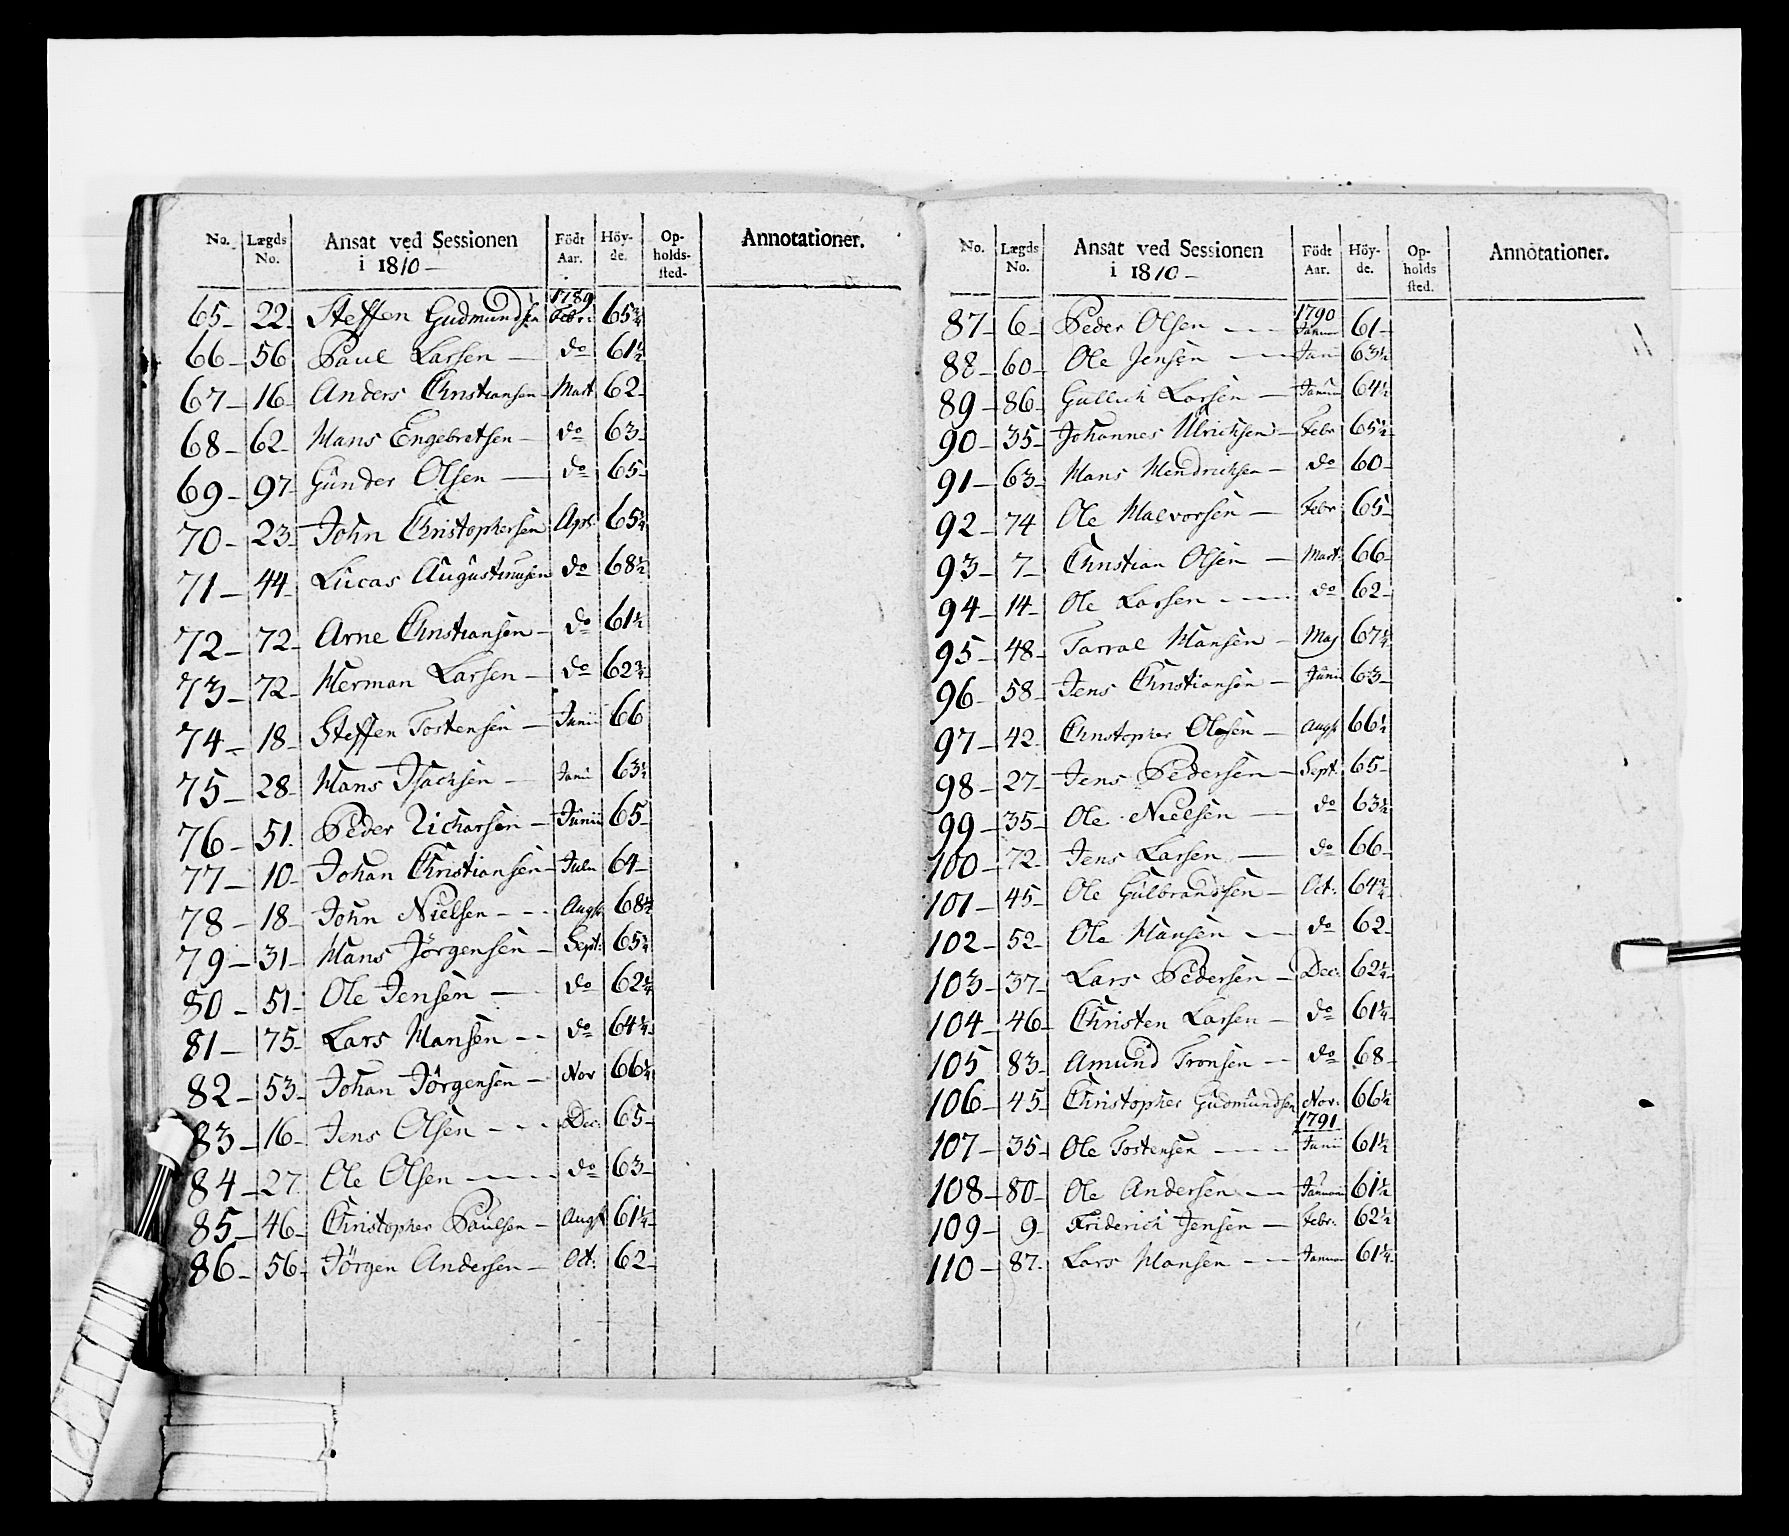 No. Lægds No. Ansat ved Sessionen i 1810 – Födt Aar. Höy-de. Op-holds-sted- Annotationer.
65 – 22 – Steffen Gudmundsen 1789 Febr: 65¾
66 – 56 Paul Larsen — do 61½
67 – 16 – Anders Christiansen – Mart 62 –
68 – 62 – Hans Engebretsen – do 63 –
69 – 97 – Gunder Olsen — do 65 –
70 – 23 – John Christophersen Apr: 65¾
71 – 44 – Lucas Augustinusen do 68½
72 – 72 – Arne Christiansen – do 61½
73 – 72 – Herman Larsen – do 62¾
74 – 18 – Steffen Tostensen — Junii 66
75 – 28 – Hans Isachsen — Junii 63½
76 – 51. Peder Richarsen – Junii 65 –
77 – 10 – Johan Christiansen – Julii 64 –
78 – 18 – John Nielsen - - - Augst 68½
79 – 31 – Hans Jörgensen – Sept: 65¾
80 – 51 – Ole Jensen — do 62¼
81 – 75 – Lars Hansen - - do 64¼
82 – 53 – Johan Jörgensen – Nov 66¼
83 – 16 – Jens Olsen - - - Dec: 65 –
84 – 27. Ole Olsen - - - - do 63 –
85 – 46 – Christopher Paulsen – Augst 61¼
86 – 56 – Jörgen Andersen – Oct: 62 –
No. Lægds No. Ansat ved Sessionen i 1810 – Födt Aar. Höy-de. Op-holds sted. Annotationer.
87 – 6 – Peder Olsen - - - 1790 Januar 61 –
88 – 60 – Ole Jensen - - - 63½
89 – 86 – Gullich Larsen — Januar 64½
90 – 35 – Johannes Ulrichsen – Febr 65½
91 – 63 – Hans Hendrichsen – do 60 –
92 – 74 Ole Halvorsen — Febr: 65 –
93 – 7 – Christian Olsen – Mart: 66 –
94 – 14 – Ole Larsen - - - - do 62 –
95 – 48 – Tarral Hansen – Maj 67¼
96 – 58 – Jens Christiansen – Junii 63 –
97 – 42. Christopher Olesen – Augst 66½
98 – 27 – Jens Pedersen – Sept: 65 –
99 – 35 – Ole Nielsen — do 63½
100 – 72 – Jens Larsen — do 66 –
101 – 45 – Ole Gulbrandsen – Oct: 64¾
102 – 52 – Ole Hansen — do 62 –
103 – 37 – Lars Pedersen – Dec: 62¼
104 – 46 – Christen Larsen – do 61¼
105 83 – Amund Tronsen - - do 68 –
106 – 45 – Christopher Gudmundsen Nov: 66½
107 – 35 – Ole Tostensen - - - 1791 Junii 61½
108 – 80 – Ole Andersen - - Januari 61½
109 – 9 – Friderich Jensen — Febr: 62½
110 – 87 – Lars Hansen - - - Januar 61¼